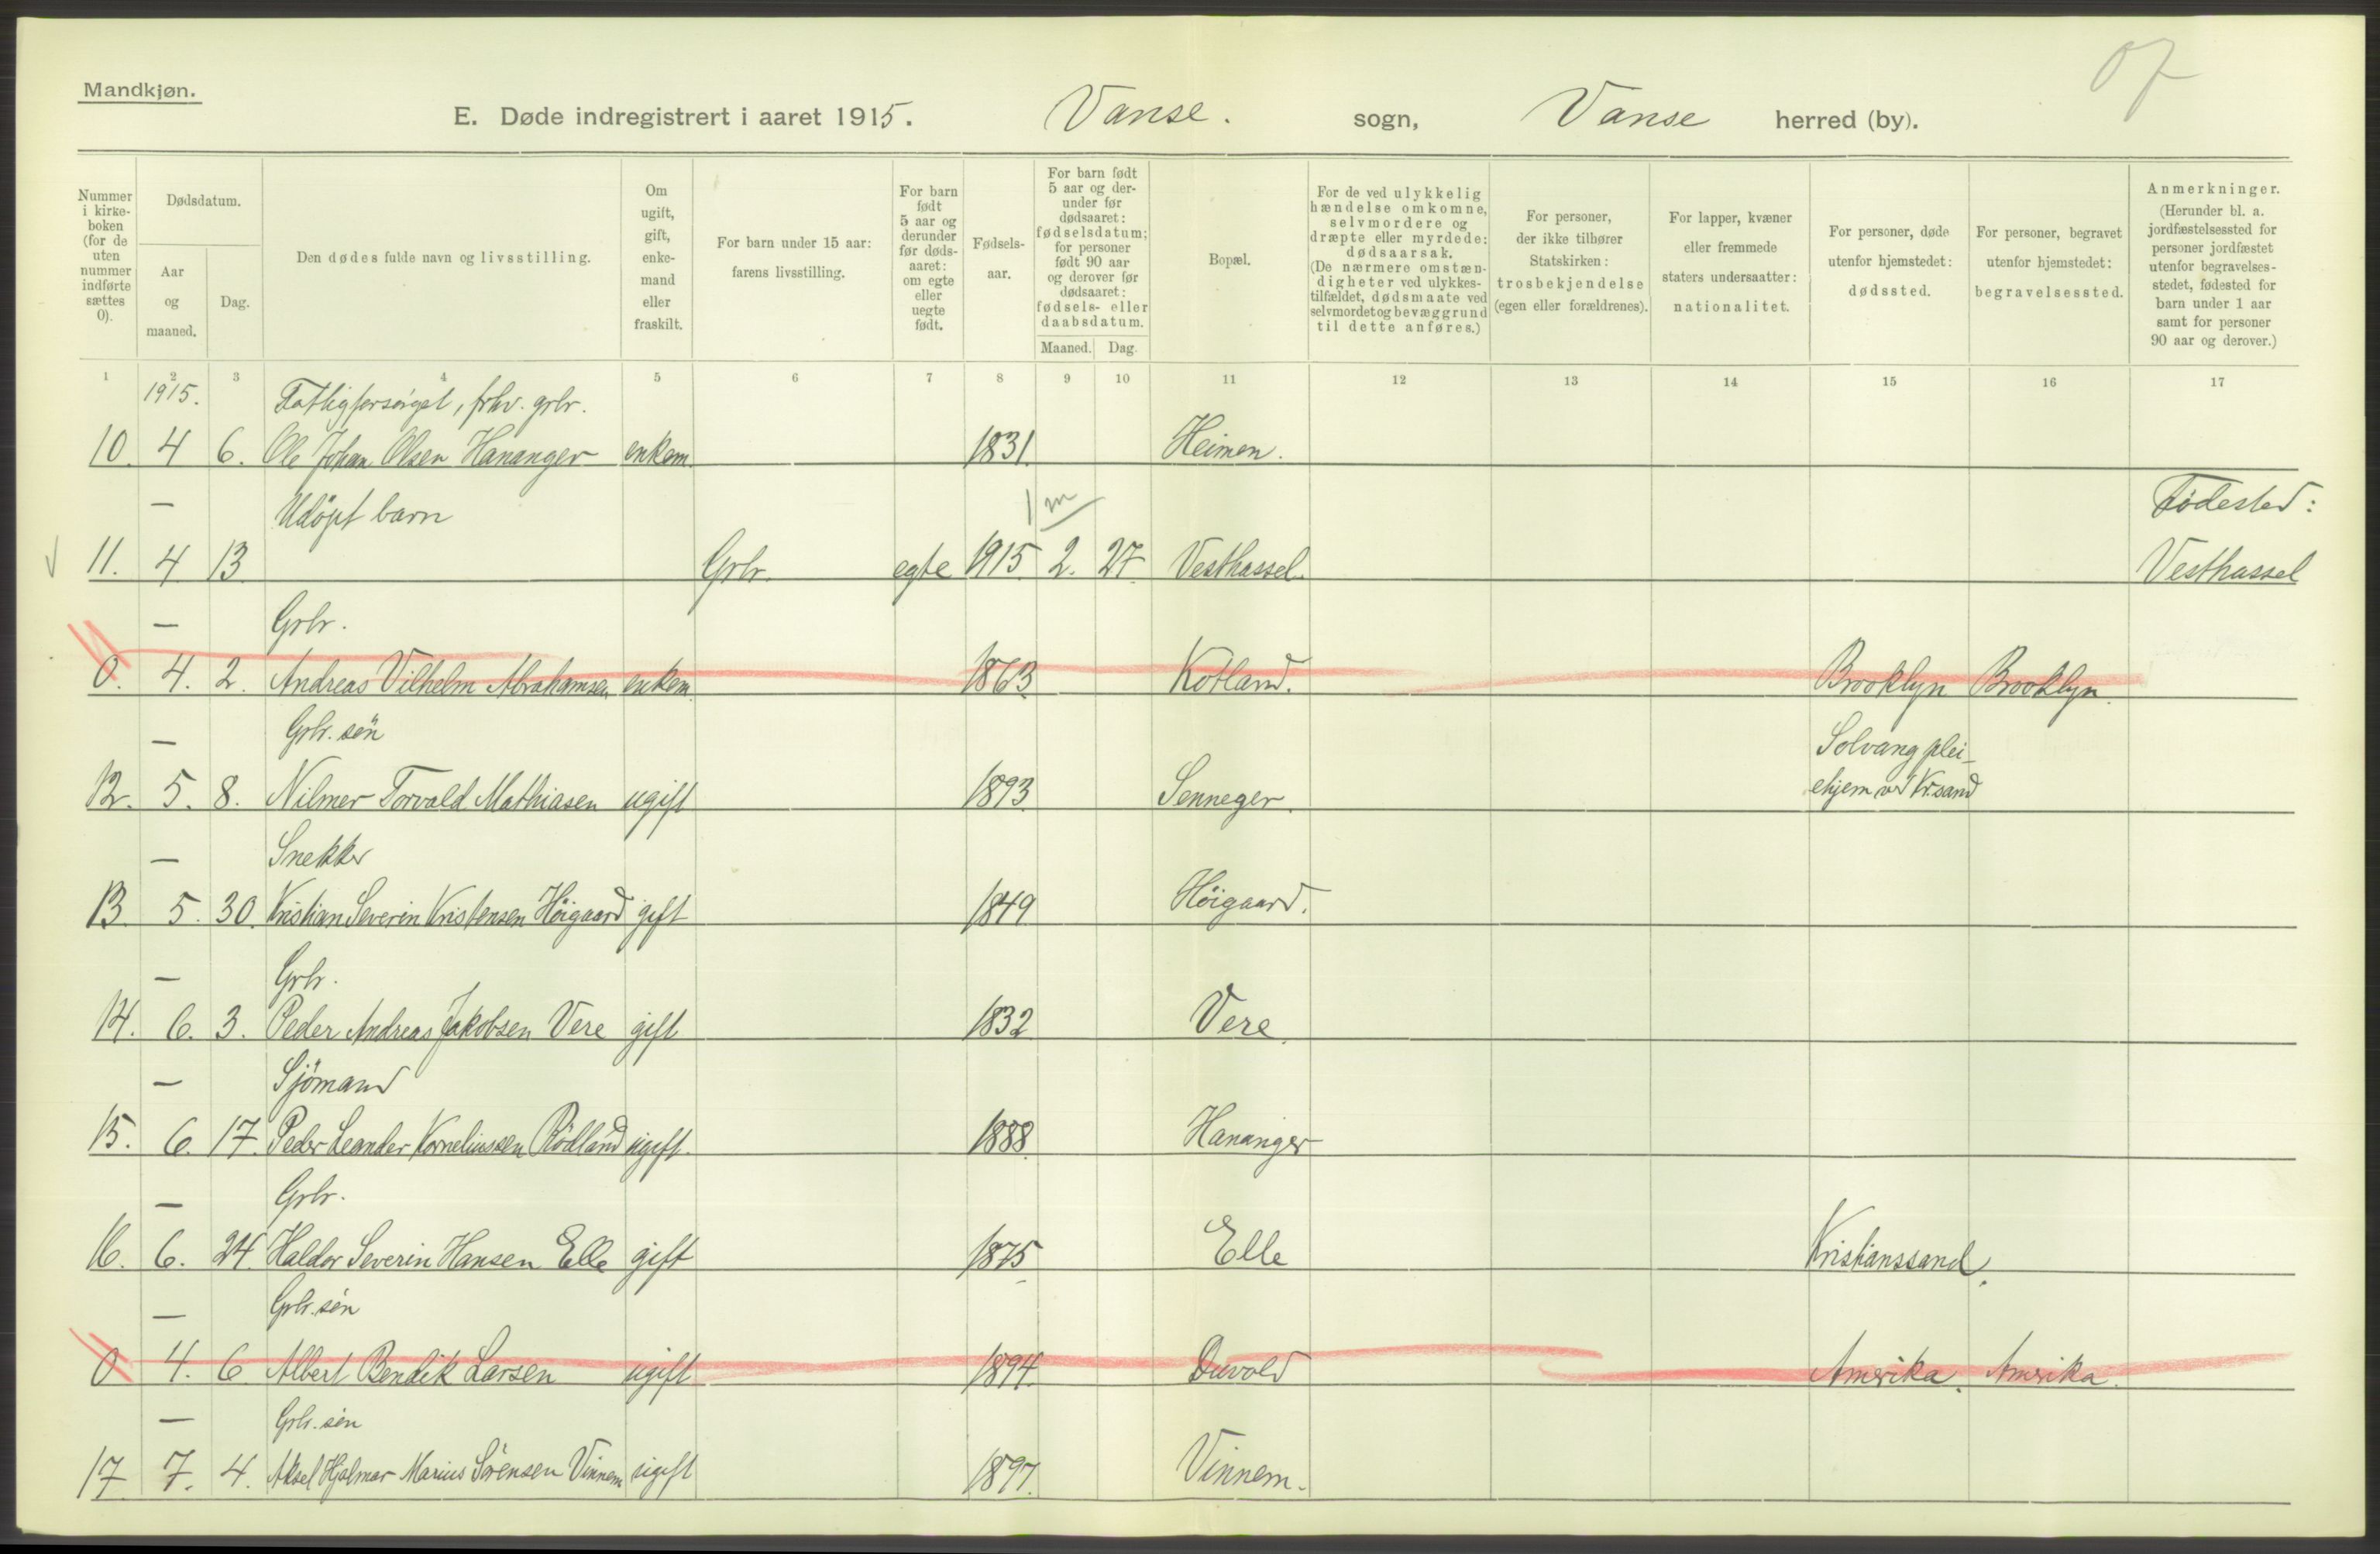 07
Mandkjøn.
E. Døde indregistrert i aaret 1915. Vanse. sogn, Vanse herred (by).
Nummer i kirke-boken (for de uten nummer indførte sættes 0).
Dødsdatum.
Aar og maaned.
Dag.
Den dødes fulde navn og livsstilling.
Om ugift, gift, enke-mand eller fraskilt.
For barn under 15 aar: farens livsstilling.
For barn født 5 aar og derunder før døds-aaret: om egte eller uegte født.
Fødsels-aar.
For barn født 5 aar og der-under før dødsaaret: fødselsdatum; for personer født 90 aar og derover før dødsaaret: fødsels- eller daabsdatum.
Maaned. Dag.
Bopæl.
For de ved ulykkelig hændelse omkomne, selvmordere og dræpte eller myrdede: dødsaarsak. (De nærmere omstæn-digheter ved ulykkes-tilfældet, dødsmaate ved selvmordet og bevæggrund til dette anføres.)
For personer, der ikke tilhører Statskirken: trosbekjendelse (egen eller forældrenes).
For lapper, kvæner eller fremmede staters undersaatter: nationalitet.
For personer, døde utenfor hjemstedet: dødssted.
For personer, begravet utenfor hjemstedet: begravelsessted.
Anmerkninger. (Herunder bl. a. jordfæstelsessted for personer jordfæstet utenfor begravelses-stedet, fødested for barn under 1 aar samt for personer 90 aar og derover.)
1 2 3 4 5 6 7 8 9 10 11 12 13 14 15 16 17
1915. Fattigforsørget, frhv. grbr.
10. 4 6. Ole Johan Olsen Hananger enkem. 1831. Heimen.
— Udöpt barn 1 m Fødested:
11. 4 13 Grbr. egte 1915 2. 27 Vesthassel. Vesthassel
— Grbr.
0. 4. 2. Andreas Vilhelm Abrahamsen enkem. 1863 Kotland. Brooklyn Brooklyn.
— Grbr. sön Solvang plei-
12. 5. 8. Nilmer Torvald Mathiasen ugift 1893 Senneger. ehjem v/ Kr.sand
— Snekker
13. 5. 30. Kristian Severin Kristensen Höigaard gift 1849 Höigaard.
— Grbr.
14. 6. 3. Peder Andreas Jakobsen Vere gift 1832 Vere.
— Sjömand
15. 6. 17. Peder Leander Korneliussen Rödland ugift. 1888. Hananger
— Grbr.
16. 6. 24. Haldor Severin Hansen Elle gift 1875 Elle Kristianssand.
— Grbr. sön
0 4. 6 Albert Bendik Larsen ugift 1894. Duvold Amerika. Amerika.
— Grbr. sön
17 7. 4. Aksel Hjalmar Marius Sörensen Vinnem ugift 1897. Vinnem.